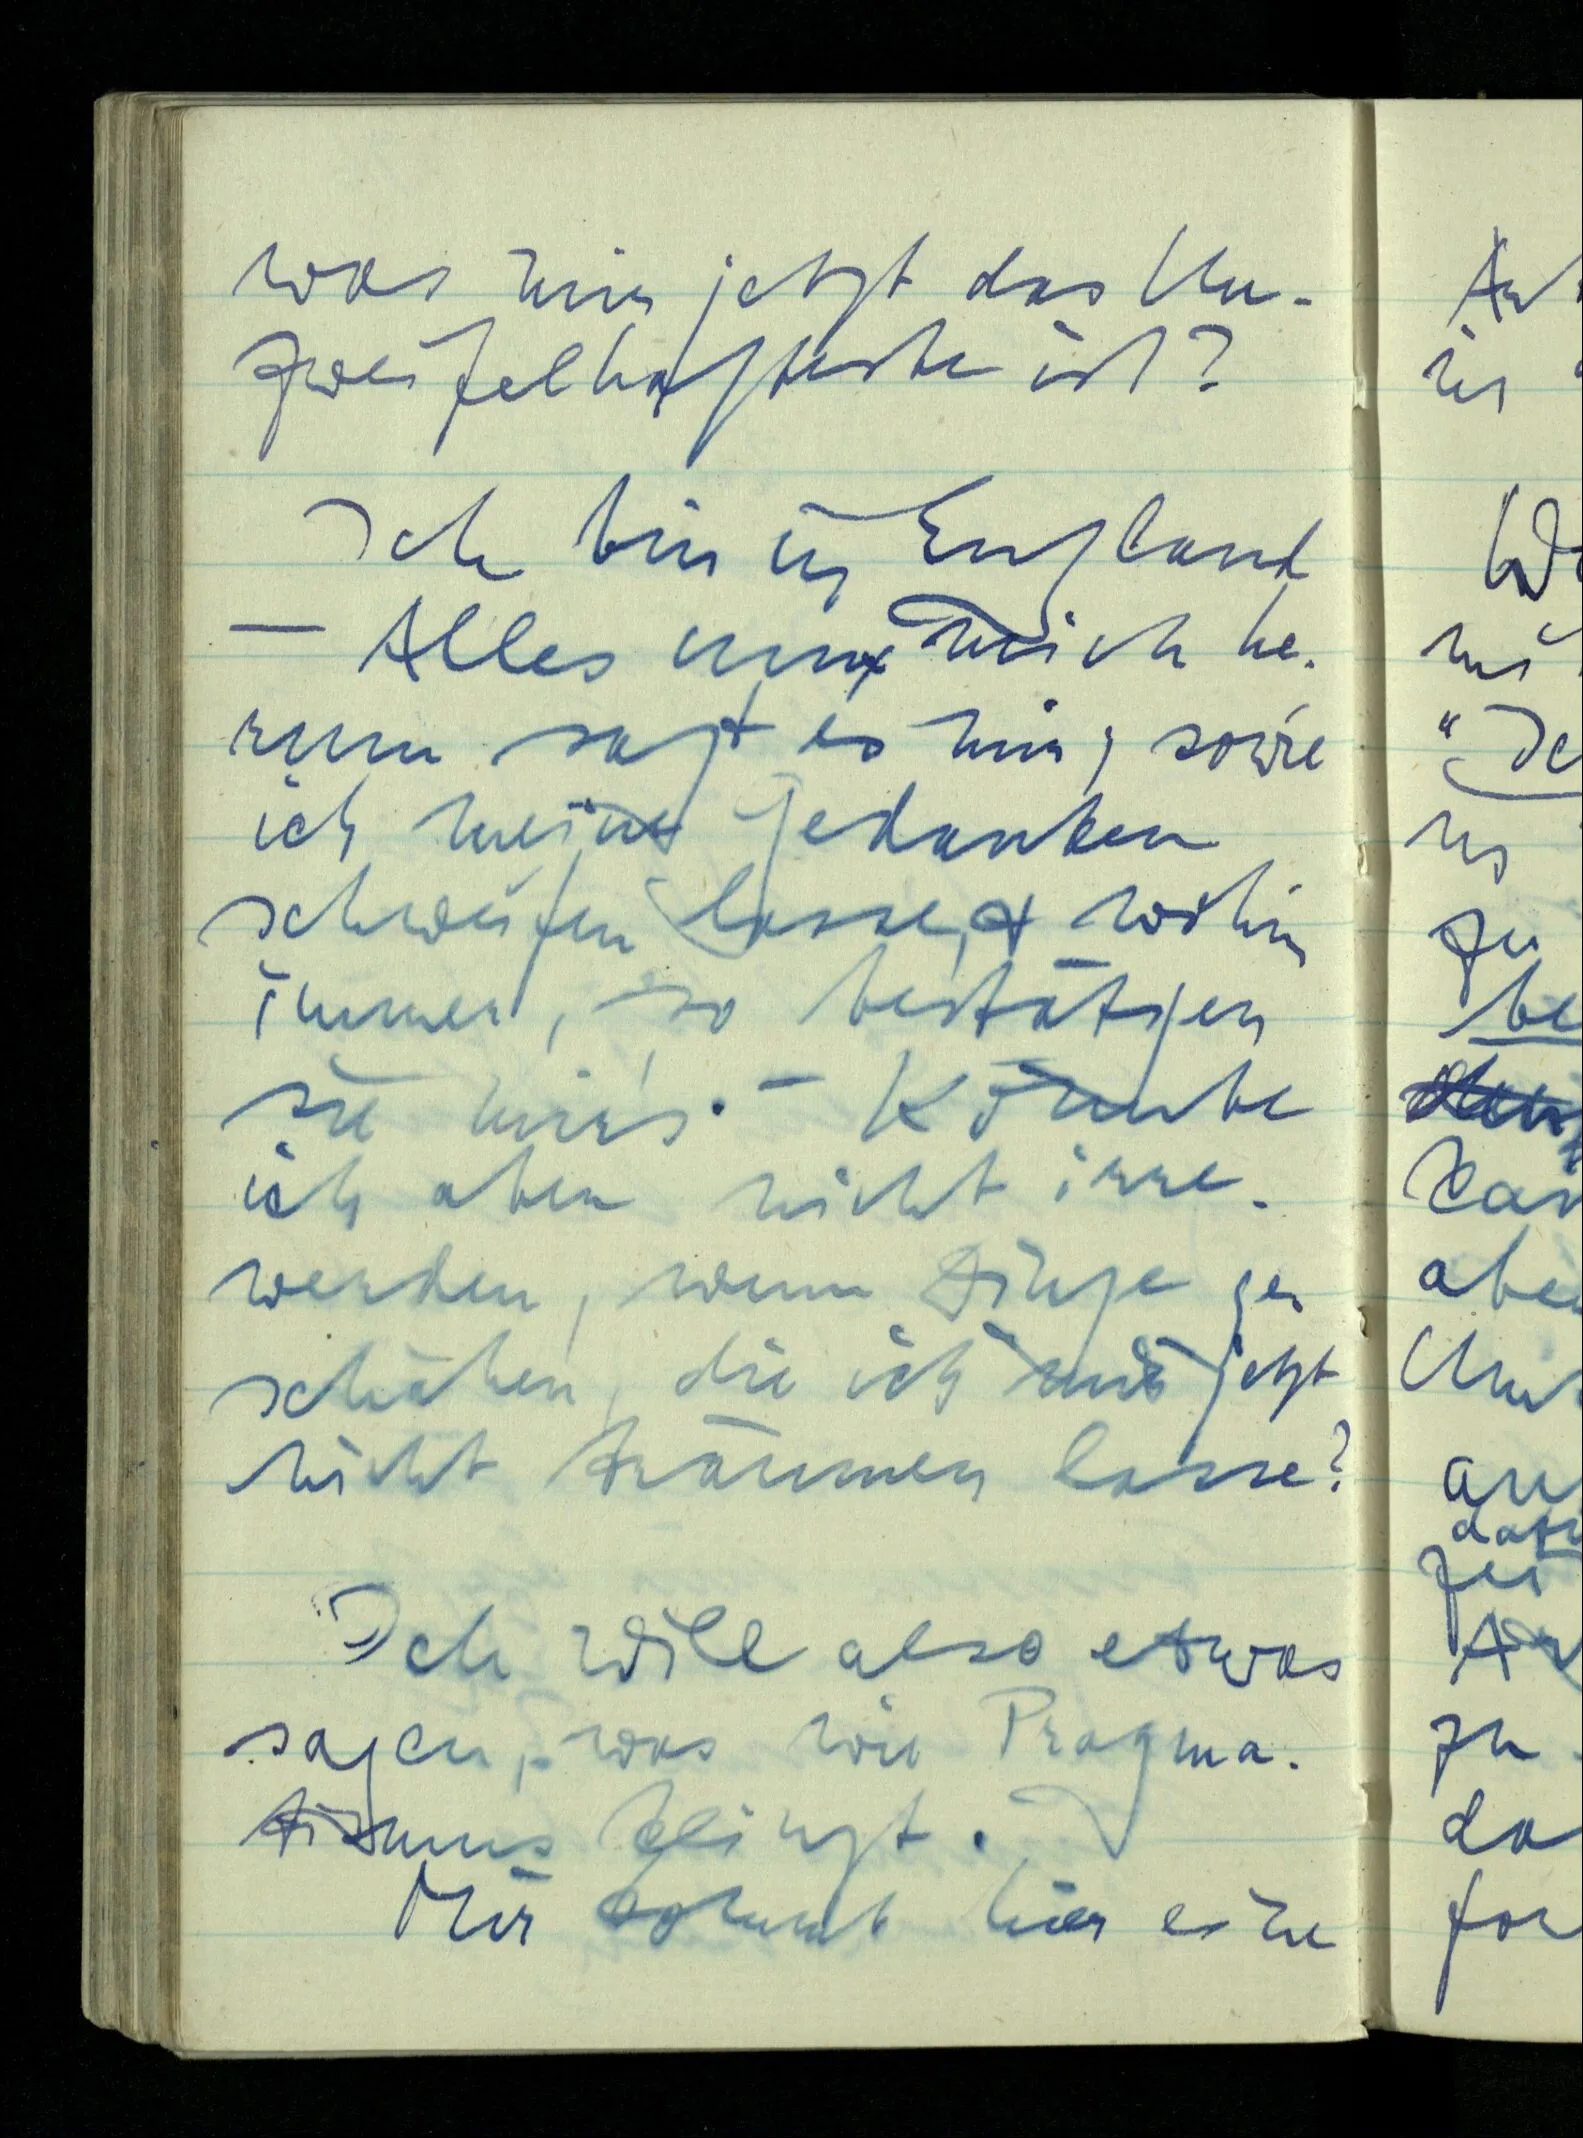 was mir jetzt das Un-
zweifelhafteste ist?
Ich bin in England
– Alles um mich he-
rum sagt es mir, sowie
ich meine Gedanken
schweifen lasse, & wohin
immer, so bestätigen
sie mir's. – Könnte
ich aber nicht irre-
werden, wenn Dinge ge-
schähen, die ich mir jetzt
nicht träumen lasse?
Ich will also etwas
sagen, was wie Pragma-
tismus klingt.
Mir kommt hier eine